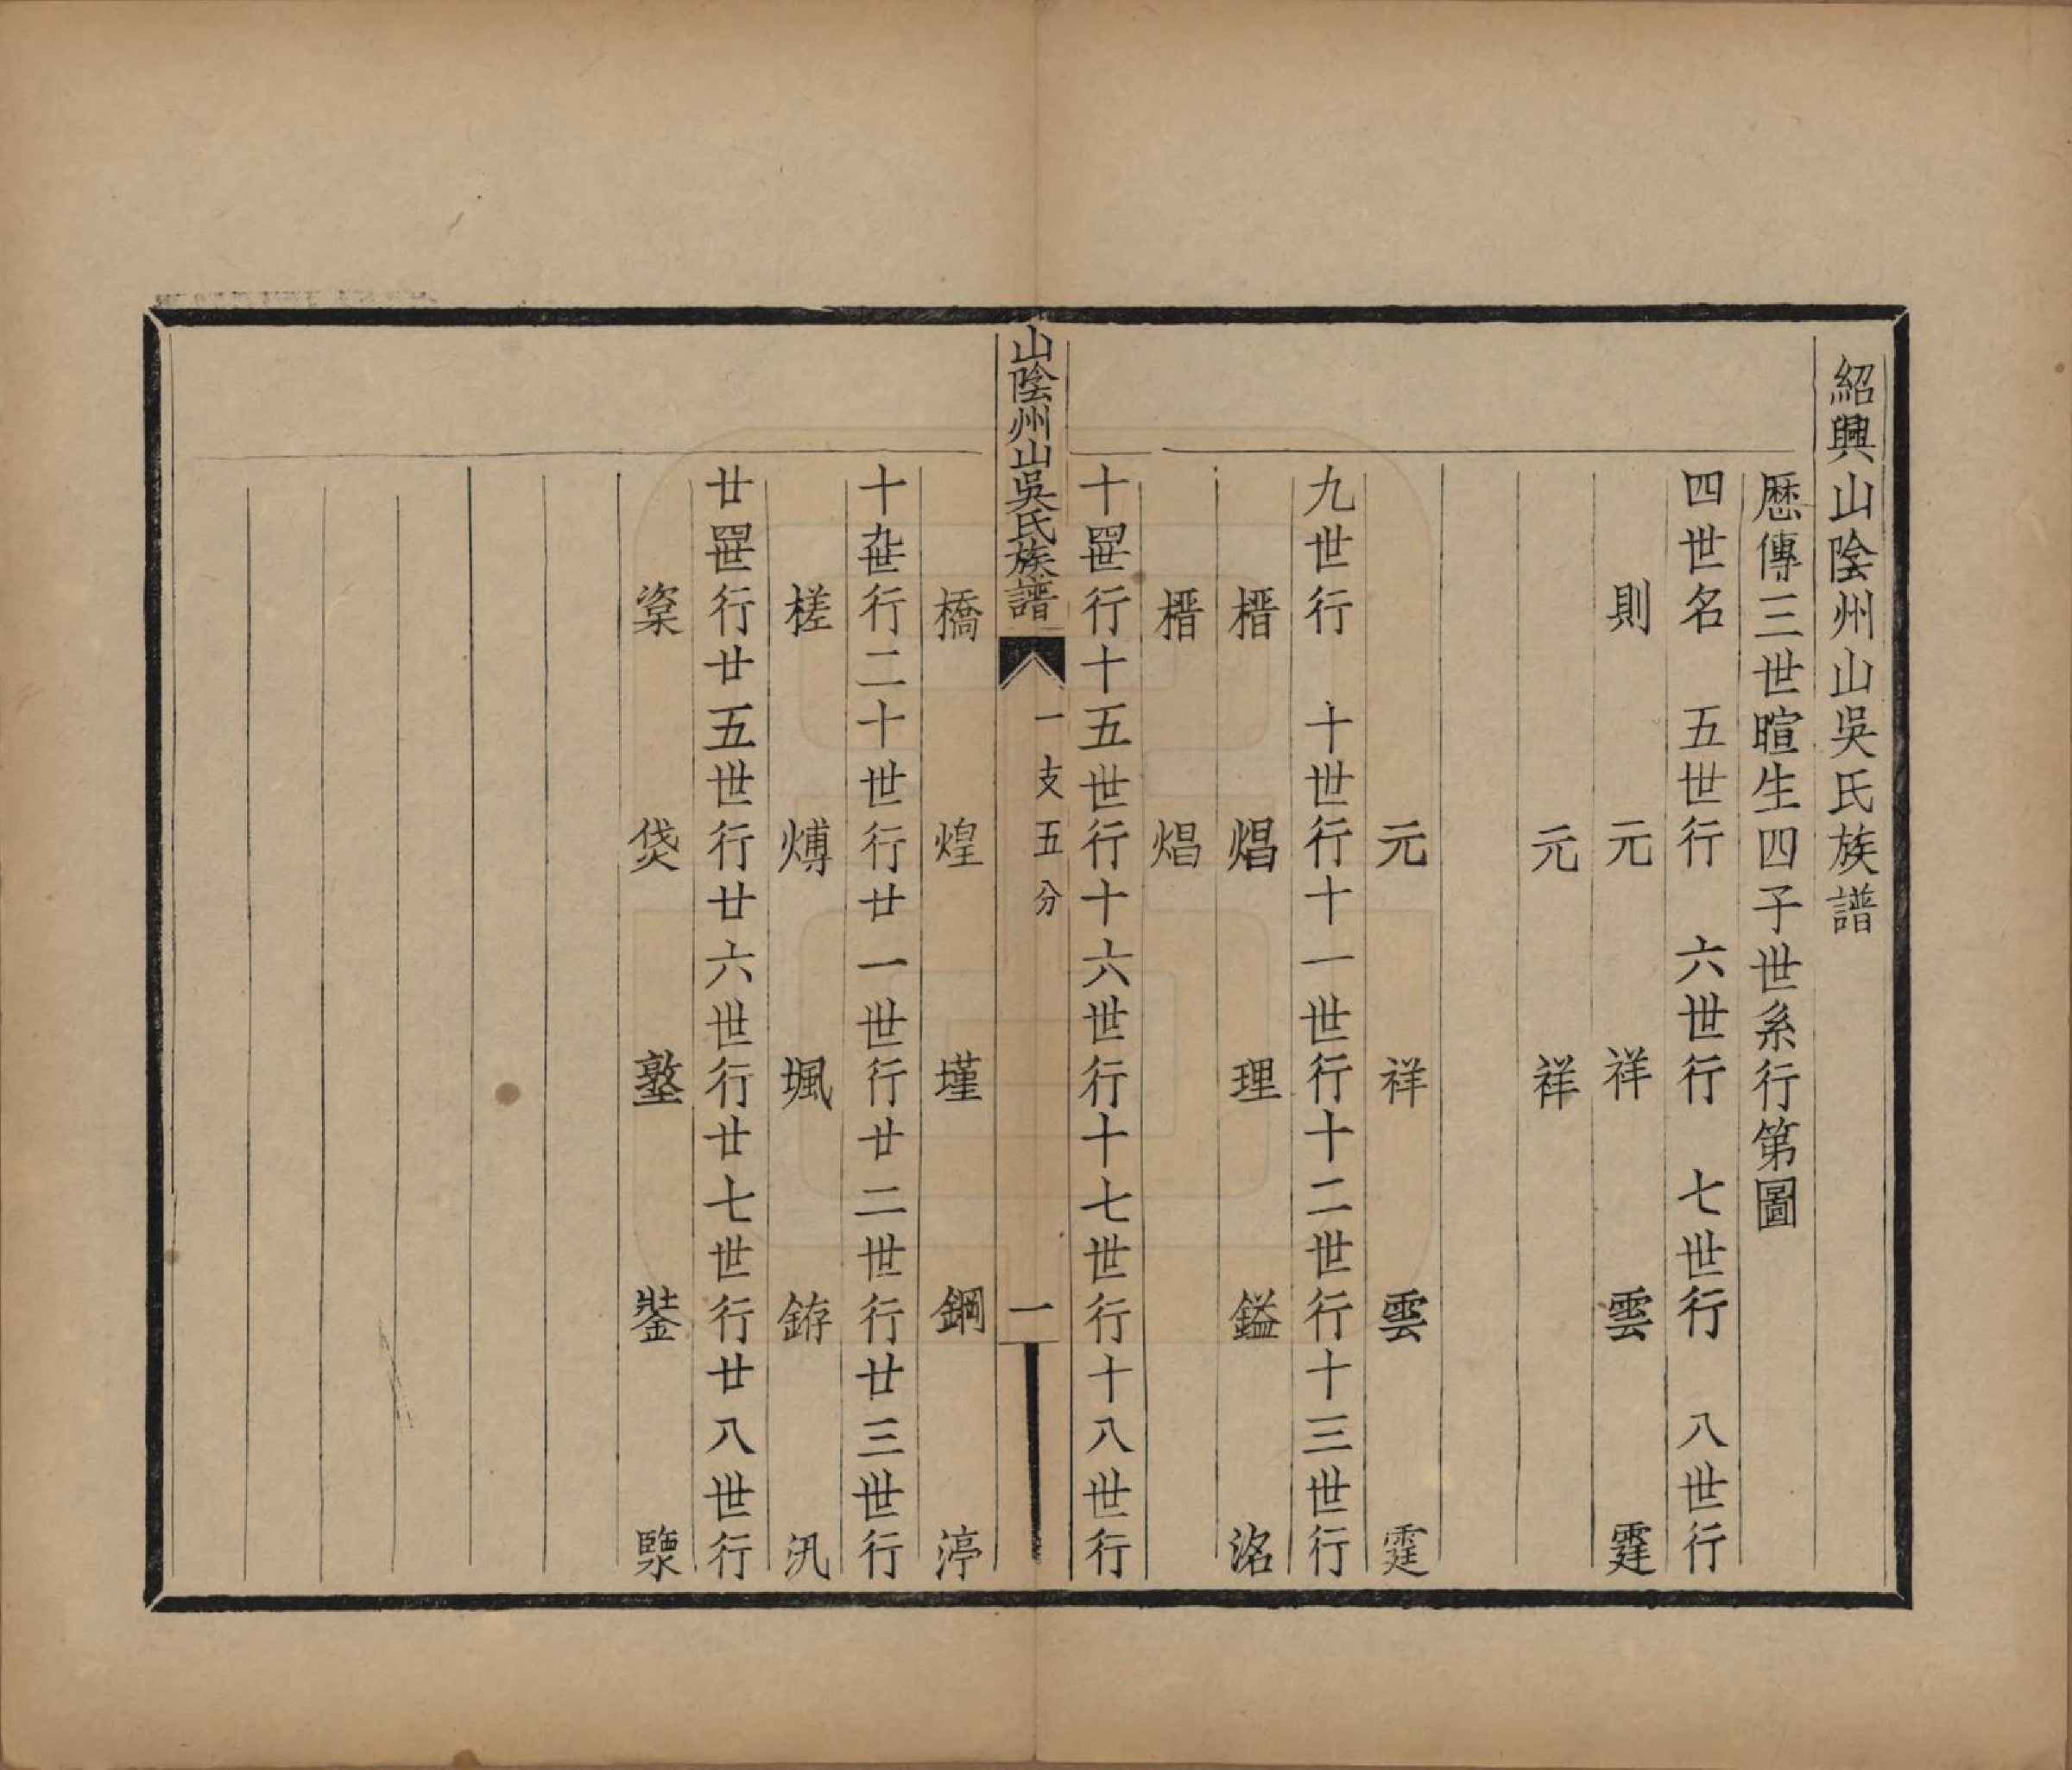 紹興山陰州山吳氏族譜
歷傳三世暄生四子世系行第圖
四世名　五世行　六世行　七世行　八世行
則　元　祥　雲　霆
元　祥
元　祥　雲　霆
九世行　十世行十一世行十二世行十三世行
榗　焻　理　鎰　洺
榗　焻
十四世行十五世行十六世行十七世行十八世行
山陰州山吳氏族譜
一支五分
一
橋　煌　墐　鋼　渟
十九世行二十世行廿一世行廿二世行廿三世行
槎　煿　堸　銌　汛
廿四世行廿五世行廿六世行廿七世行廿八世行
楶